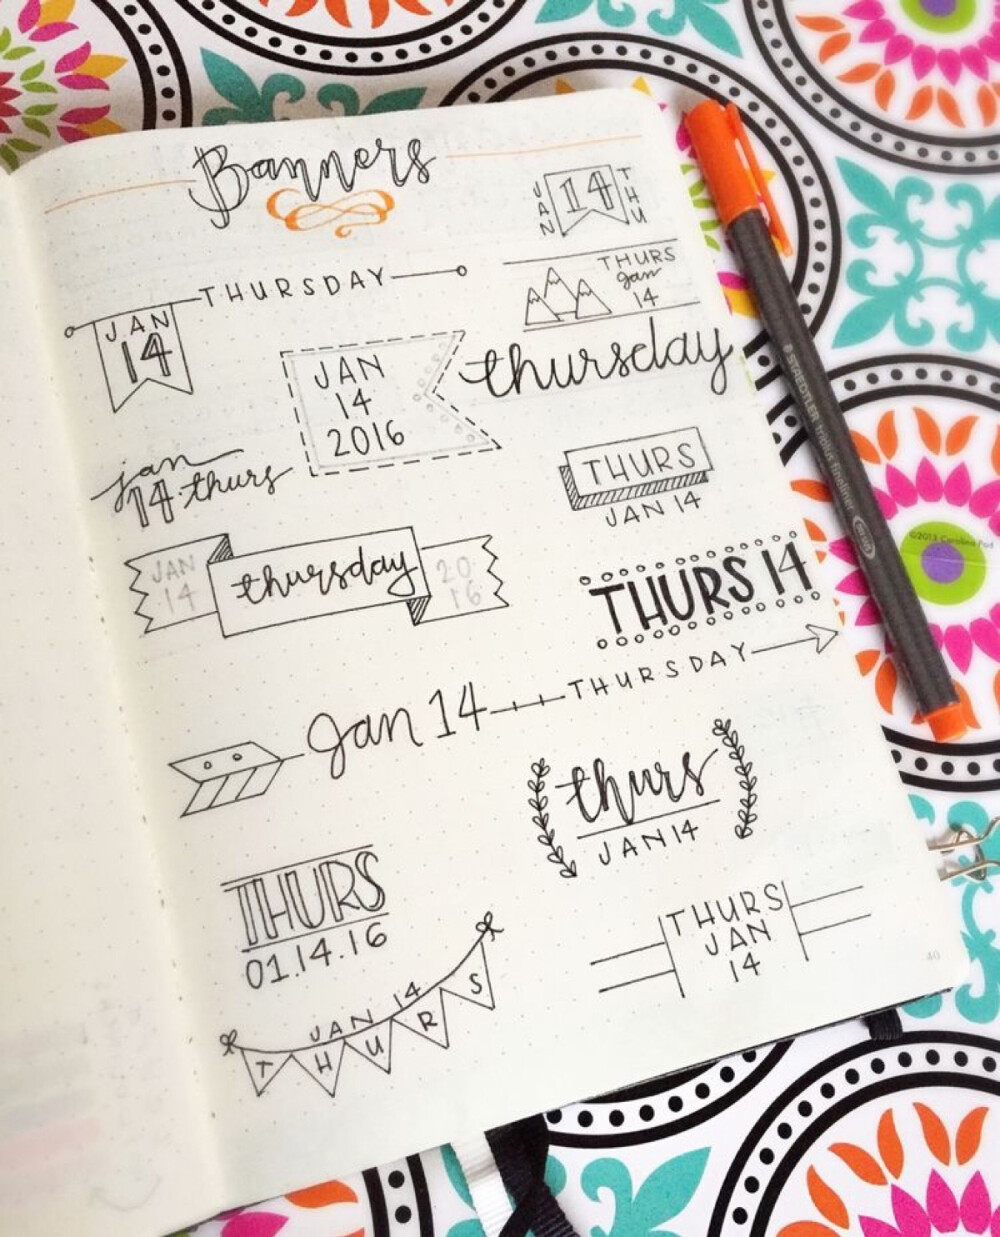 Banners
JAN
14
THU
THURSDAY
JAN
14
THURS
jan
14
JAN
14
2016
thursday
jan
14 thurs
THURS
JAN 14
JAN
14
thursday
20
16
THURS 14
Jan 14
THURSDAY
thurs
JAN 14
THURS
01.14.16
THURS
JAN
14
JAN 14
THURS
40
STAEDTLER triplus fineliner